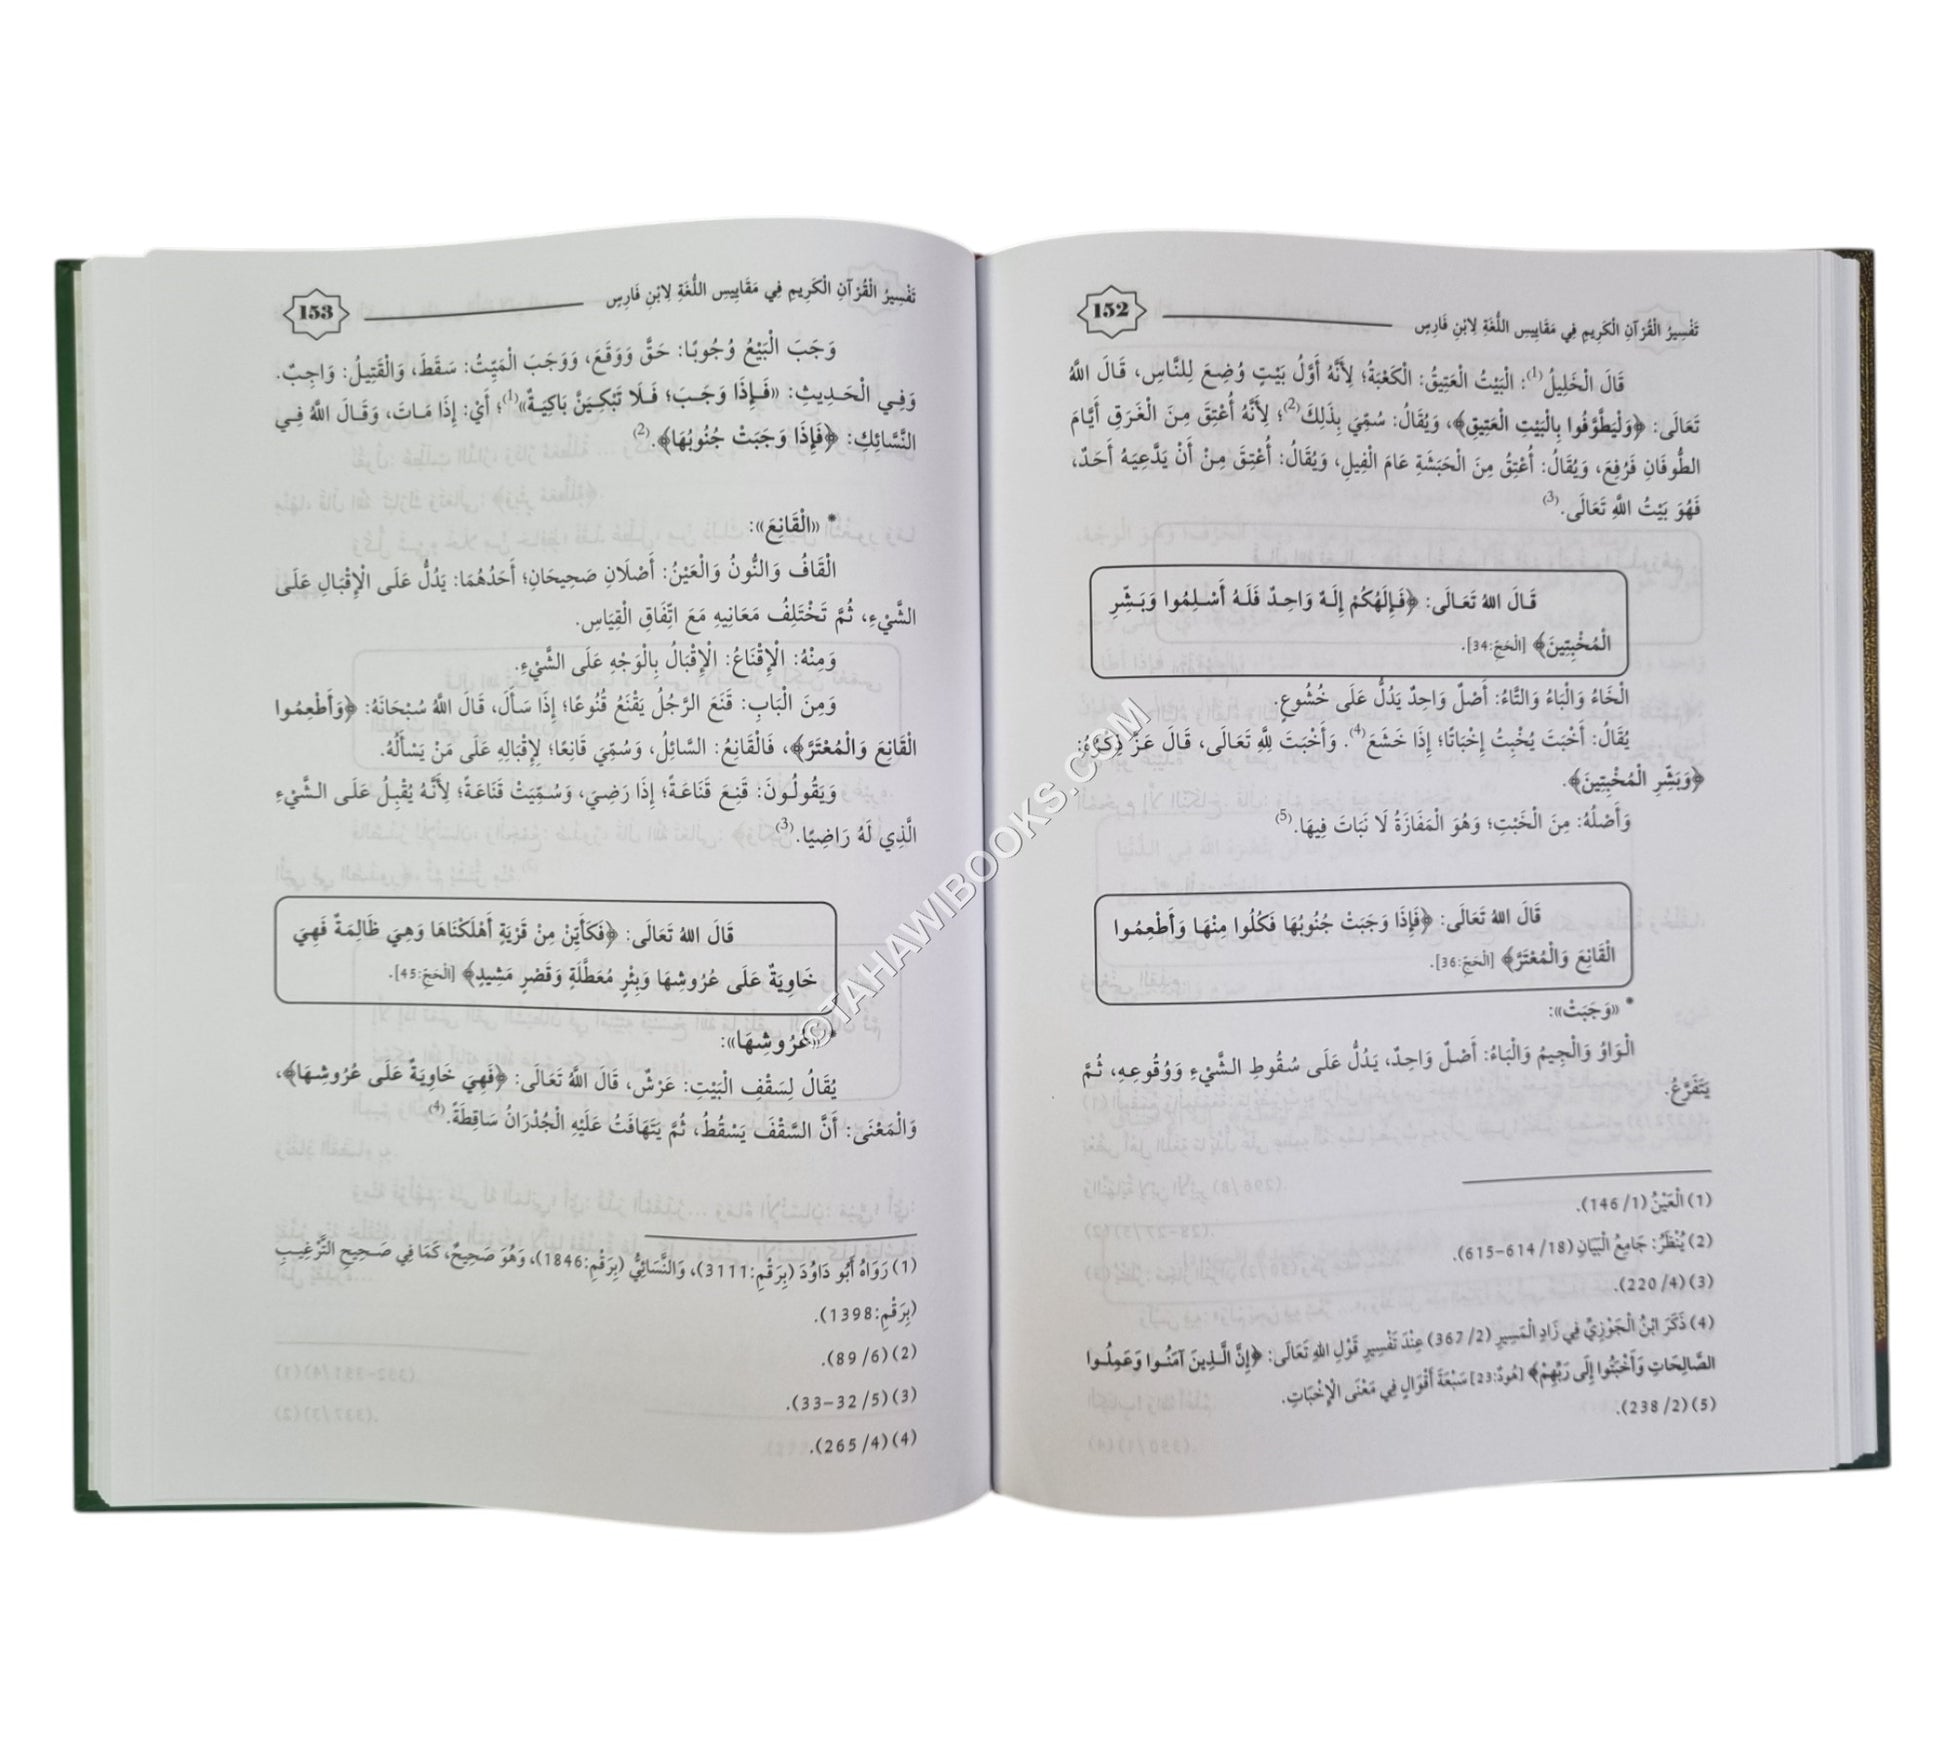 تَفْسِيرُ الْقُرْآنِ الْكَرِيمِ فِي مَقَايِيسِ اللُّغَةِ لِابْنِ فَارِسٍ
152
قَالَ الْخَلِيلُ(1): الْبَيْتُ الْعَتِيقُ: الْكَعْبَةُ؛ لِأَنَّهُ أَوَّلُ بَيْتٍ وُضِعَ لِلنَّاسِ، قَالَ اللهُ
تَعَالَى: ﴿وَلْيَطَّوَّفُوا بِالْبَيْتِ الْعَتِيقِ﴾، وَيُقَالُ: سُمِّيَ بِذَلِكَ(2)؛ لِأَنَّهُ أُعْتِقَ مِنَ الْغَرَقِ أَيَّامَ
الطُّوفَانِ فَرُفِعَ، وَيُقَالُ: أُعْتِقُ مِنَ الْحَبَشَةِ عَامَ الْفِيلِ، وَيُقَالُ: أُعْتِقَ مِنْ أَنْ يَدَّعِيَهُ أَحَدٌ،
فَهُوَ بَيْتُ اللَّهِ تَعَالَى.(3)
قَالَ اللهُ تَعَالَى: ﴿فَإِلَهُكُمْ إِلَهٌ وَاحِدٌ فَلَهُ أَسْلِمُوا وَبَشِّرِ
الْمُخْبِتِينَ﴾ [الْحَجّ:34].
الْخَاءُ وَالْبَاءُ وَالتَّاءُ: أَصْلٌ وَاحِدٌ يَدُلُّ عَلَى خُشُوعٍ.
يُقَالُ: أَخْبَتَ يُخْبِتُ إِخْبَاتًا؛ إِذَا خَشَعَ(4). وَأَخْبَتَ لِلَّهِ تَعَالَى، قَالَ عَزَّ ذِكْرُهُ:
﴿وَبَشِّرِ الْمُخْبِتِينَ﴾.
وَأَصْلُهُ: مِنَ الْخَبْتِ؛ وَهُوَ الْمَفَازَةُ لَا نَبَاتَ فِيهَا.(5)
قَالَ اللهُ تَعَالَى: ﴿فَإِذَا وَجَبَتْ جُنُوبُهَا فَكُلُوا مِنْهَا وَأَطْعِمُوا
الْقَانِعَ وَالْمُعْتَرَّ﴾ [الْحَجّ:36].
* «وَجَبَتْ»:
الْوَاوُ وَالْجِيمُ وَالْبَاءُ: أَصْلٌ وَاحِدٌ، يَدُلُّ عَلَى سُقُوطِ الشَّيْءِ وَوُقُوعِهِ، ثُمَّ
يَتَفَرَّعُ.
(1) الْعَيْنُ (1/ 146).
(2) يُنْظَرُ: جَامِعُ الْبَيَانِ (18/ 614-615).
(3) (4/ 220).
(4) ذَكَرَ ابْنُ الْجَوْزِيِّ فِي زَادِ الْمَسِيرِ (2/ 367) عِنْدَ تَفْسِيرِ قَوْلِ اللهِ تَعَالَى: ﴿إِنَّ الَّذِينَ آمَنُوا وَعَمِلُوا
الصَّالِحَاتِ وَأَخْبَتُوا إِلَى رَبِّهِمْ﴾ [هُودٌ:23] سَبْعَةَ أَقْوَالٍ فِي مَعْنَى الْإِخْبَاتِ.
(5) (2/ 238).
تَفْسِيرُ الْقُرْآنِ الْكَرِيمِ فِي مَقَايِيسِ اللُّغَةِ لِابْنِ فَارِسٍ
153
وَجَبَ الْبَيْعُ وُجُوبًا: حَقَّ وَوَقَعَ، وَوَجَبَ الْمَيِّتُ: سَقَطَ، وَالْقَتِيلُ: وَاجِبٌ.
وَفِي الْحَدِيثِ: «فَإِذَا وَجَبَ؛ فَلَا تَبْكِيَنَّ بَاكِيَةٌ»(1)؛ أَيْ: إِذَا مَاتَ، وَقَالَ اللَّهُ فِي
النَّسَائِكِ: ﴿فَإِذَا وَجَبَتْ جُنُوبُهَا﴾.(2)
* «الْقَانِعَ»:
الْقَافُ وَالنُّونُ وَالْعَيْنُ: أَصْلَانِ صَحِيحَانِ؛ أَحَدُهُمَا: يَدُلُّ عَلَى الْإِقْبَالِ عَلَى
الشَّيْءِ، ثُمَّ تَخْتَلِفُ مَعَانِيهِ مَعَ اتِّفَاقِ الْقِيَاسِ.
وَمِنْهُ: الْإِقْنَاعُ: الْإِقْبَالُ بِالْوَجْهِ عَلَى الشَّيْءِ.
وَمِنَ الْبَابِ: قَنَعَ الرَّجُلُ يَقْنَعُ قُنُوعًا؛ إِذَا سَأَلَ، قَالَ اللَّهُ سُبْحَانَهُ: ﴿وَأَطْعِمُوا
الْقَانِعَ وَالْمُعْتَرَّ﴾، فَالْقَانِعُ: السَّائِلُ، وَسُمِّيَ قَانِعًا؛ لِإِقْبَالِهِ عَلَى مَنْ يَسْأَلُهُ.
وَيَقُولُونَ: قَنِعَ قَنَاعَةً؛ إِذَا رَضِيَ، وَسُمِّيَتْ قَنَاعَةً؛ لِأَنَّهُ يُقْبِلُ عَلَى الشَّيْءِ
الَّذِي لَهُ رَاضِيًا.(3)
قَالَ اللهُ تَعَالَى: ﴿فَكَأَيِّنْ مِنْ قَرْيَةٍ أَهْلَكْنَاهَا وَهِيَ ظَالِمَةٌ فَهِيَ
خَاوِيَةٌ عَلَى عُرُوشِهَا وَبِئْرٍ مُعَطَّلَةٍ وَقَصْرٍ مَشِيدٍ﴾ [الْحَجّ:45].
* «عُرُوشِهَا»:
يُقَالُ لِسَقْفِ الْبَيْتِ: عَرْشٌ، قَالَ اللَّهُ تَعَالَى: ﴿فَهِيَ خَاوِيَةٌ عَلَى عُرُوشِهَا﴾،
وَالْمَعْنَى: أَنَّ السَّقْفَ يَسْقُطُ، ثُمَّ يَتَهَافَتُ عَلَيْهِ الْجُدْرَانُ سَاقِطَةً.(4)
(1) رَوَاهُ أَبُو دَاوُدَ (بِرَقْمِ:3111)، وَالنَّسَائِيُّ (بِرَقْمِ:1846)، وَهُوَ صَحِيحٌ، كَمَا فِي صَحِيحِ التَّرْغِيبِ
(بِرَقْمِ:1398).
(2) (6/ 89).
(3) (5/ 32-33).
(4) (4/ 265).
©TAHAWIBOOKS.COM